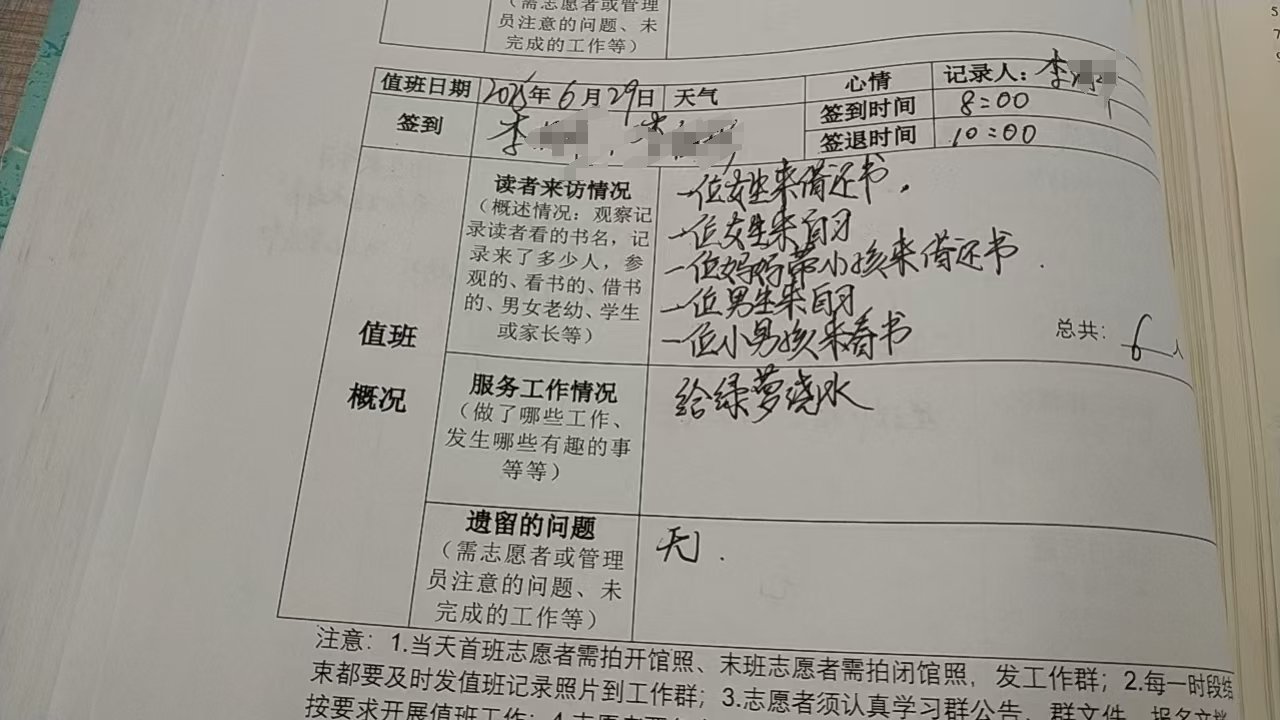 （需志愿者或管理
员注意的问题、未
完成的工作等）
值班日期
2025年6月29日
天气
心情
记录人：李
签到
李
签到时间
8:00
签退时间
10:00
值班
概况
读者来访情况
（概述情况：观察记
录读者看的书名，记
录来了多少人，参
观的、看书的、借书
的、男女老幼、学生
或家长等）
一位女生来借还书.
一位女生来自习
一位妈妈带小孩来借还书.
一位男生来自习
一位小男孩来看书
总共：6人
服务工作情况
（做了哪些工作、
发生哪些有趣的事
等等）
给绿萝浇水
遗留的问题
（需志愿者或管理
员注意的问题、未
完成的工作等）
无.
注意：1.当天首班志愿者需拍开馆照、末班志愿者需拍闭馆照，发工作群；2.每一时段结
束都要及时发值班记录照片到工作群；3.志愿者须认真学习群公告、群文件、报名文档
按要求开展值班工作；4.志愿者